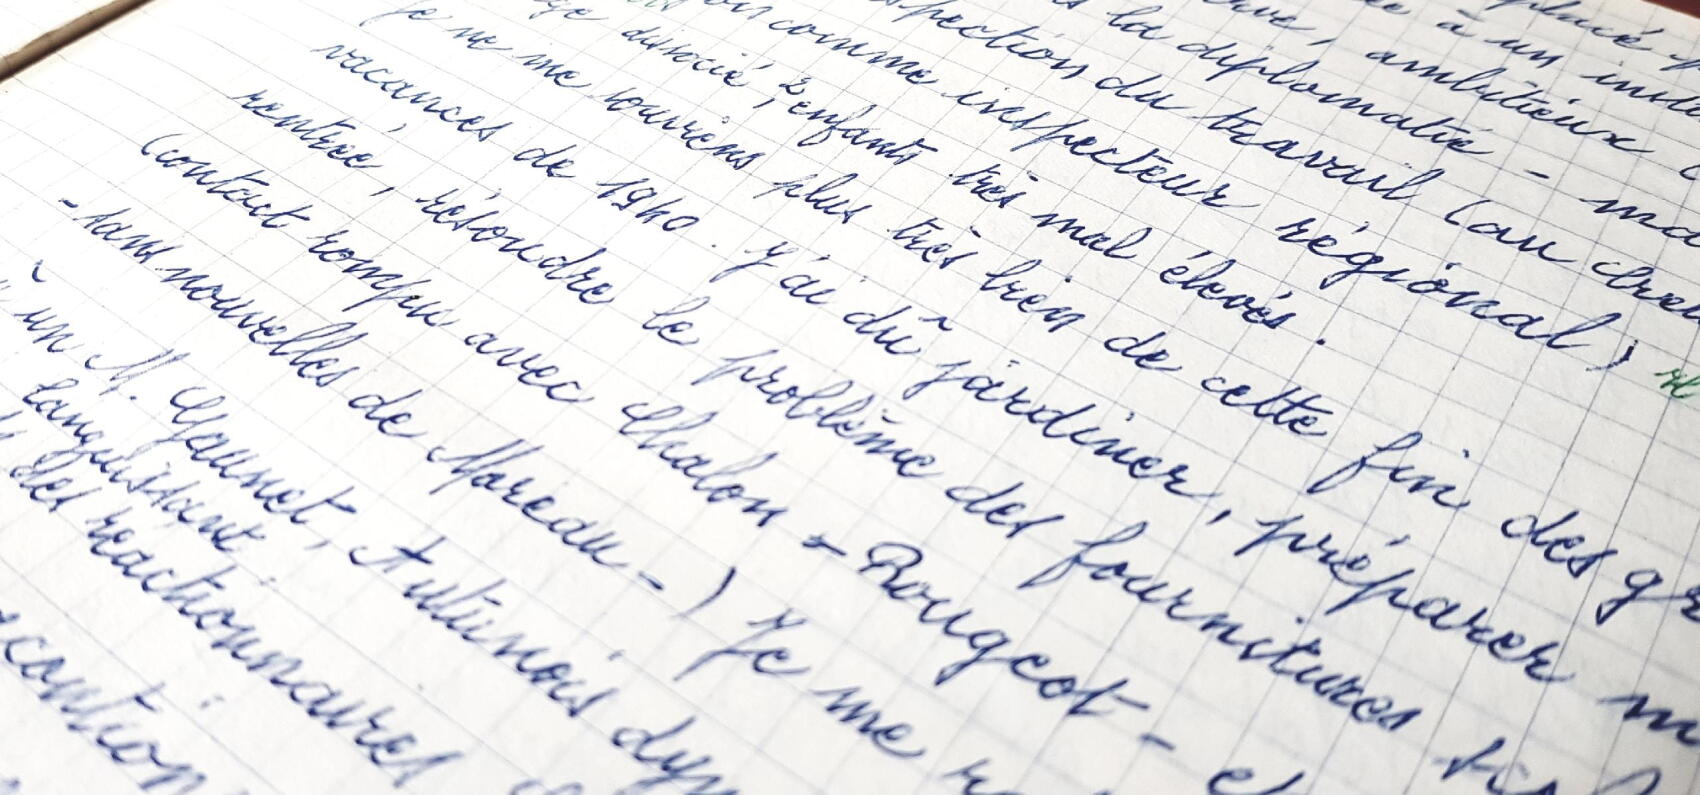 placé
à un inst
ambitieux
la diplomatie - ma
spection du travail (au
comme inspecteur régional)
dissocié, 2 enfants très mal élevés.
Je ne me souviens plus très bien de cette fin des gr
vacances de 1940. J'ai dû jardiner, préparer m
rentrée, résoudre le problème des fournitures
(contact rompu avec Chalon - Rougeot - et
- sans nouvelles de Moreau -) Je me r
à un M. Gaunet, Autunois dyn
languissant
des réactionnaires